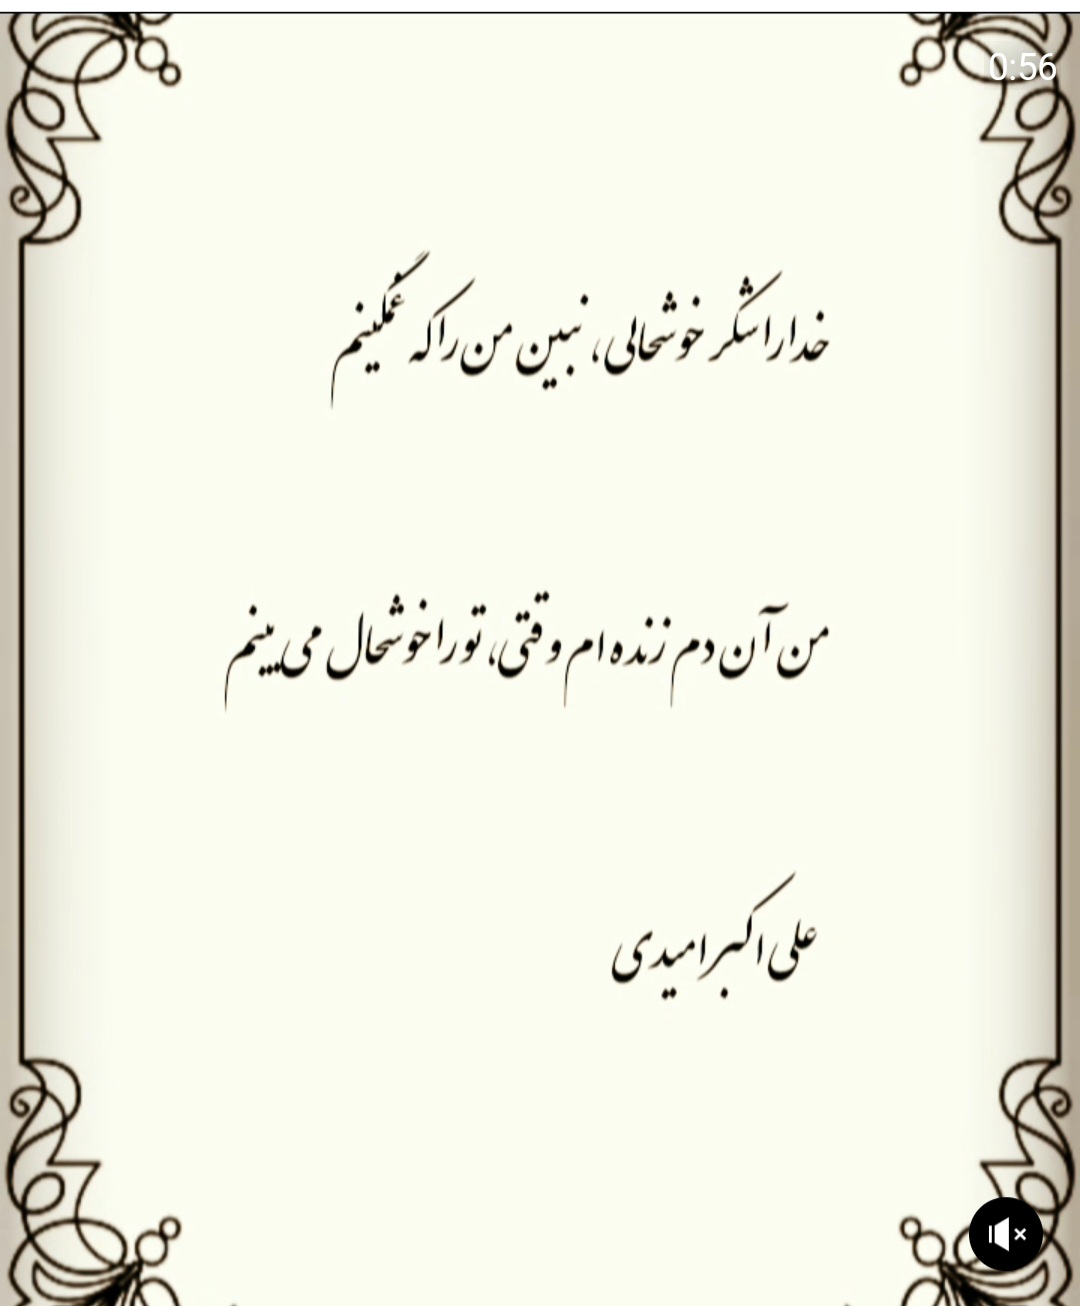 0:56
خدا را شکر خوشحالی، نبین من را که غمگینم
من آن دم زنده ام وقتی، تو را خوشحال می بینم
علی اکبر امیدی